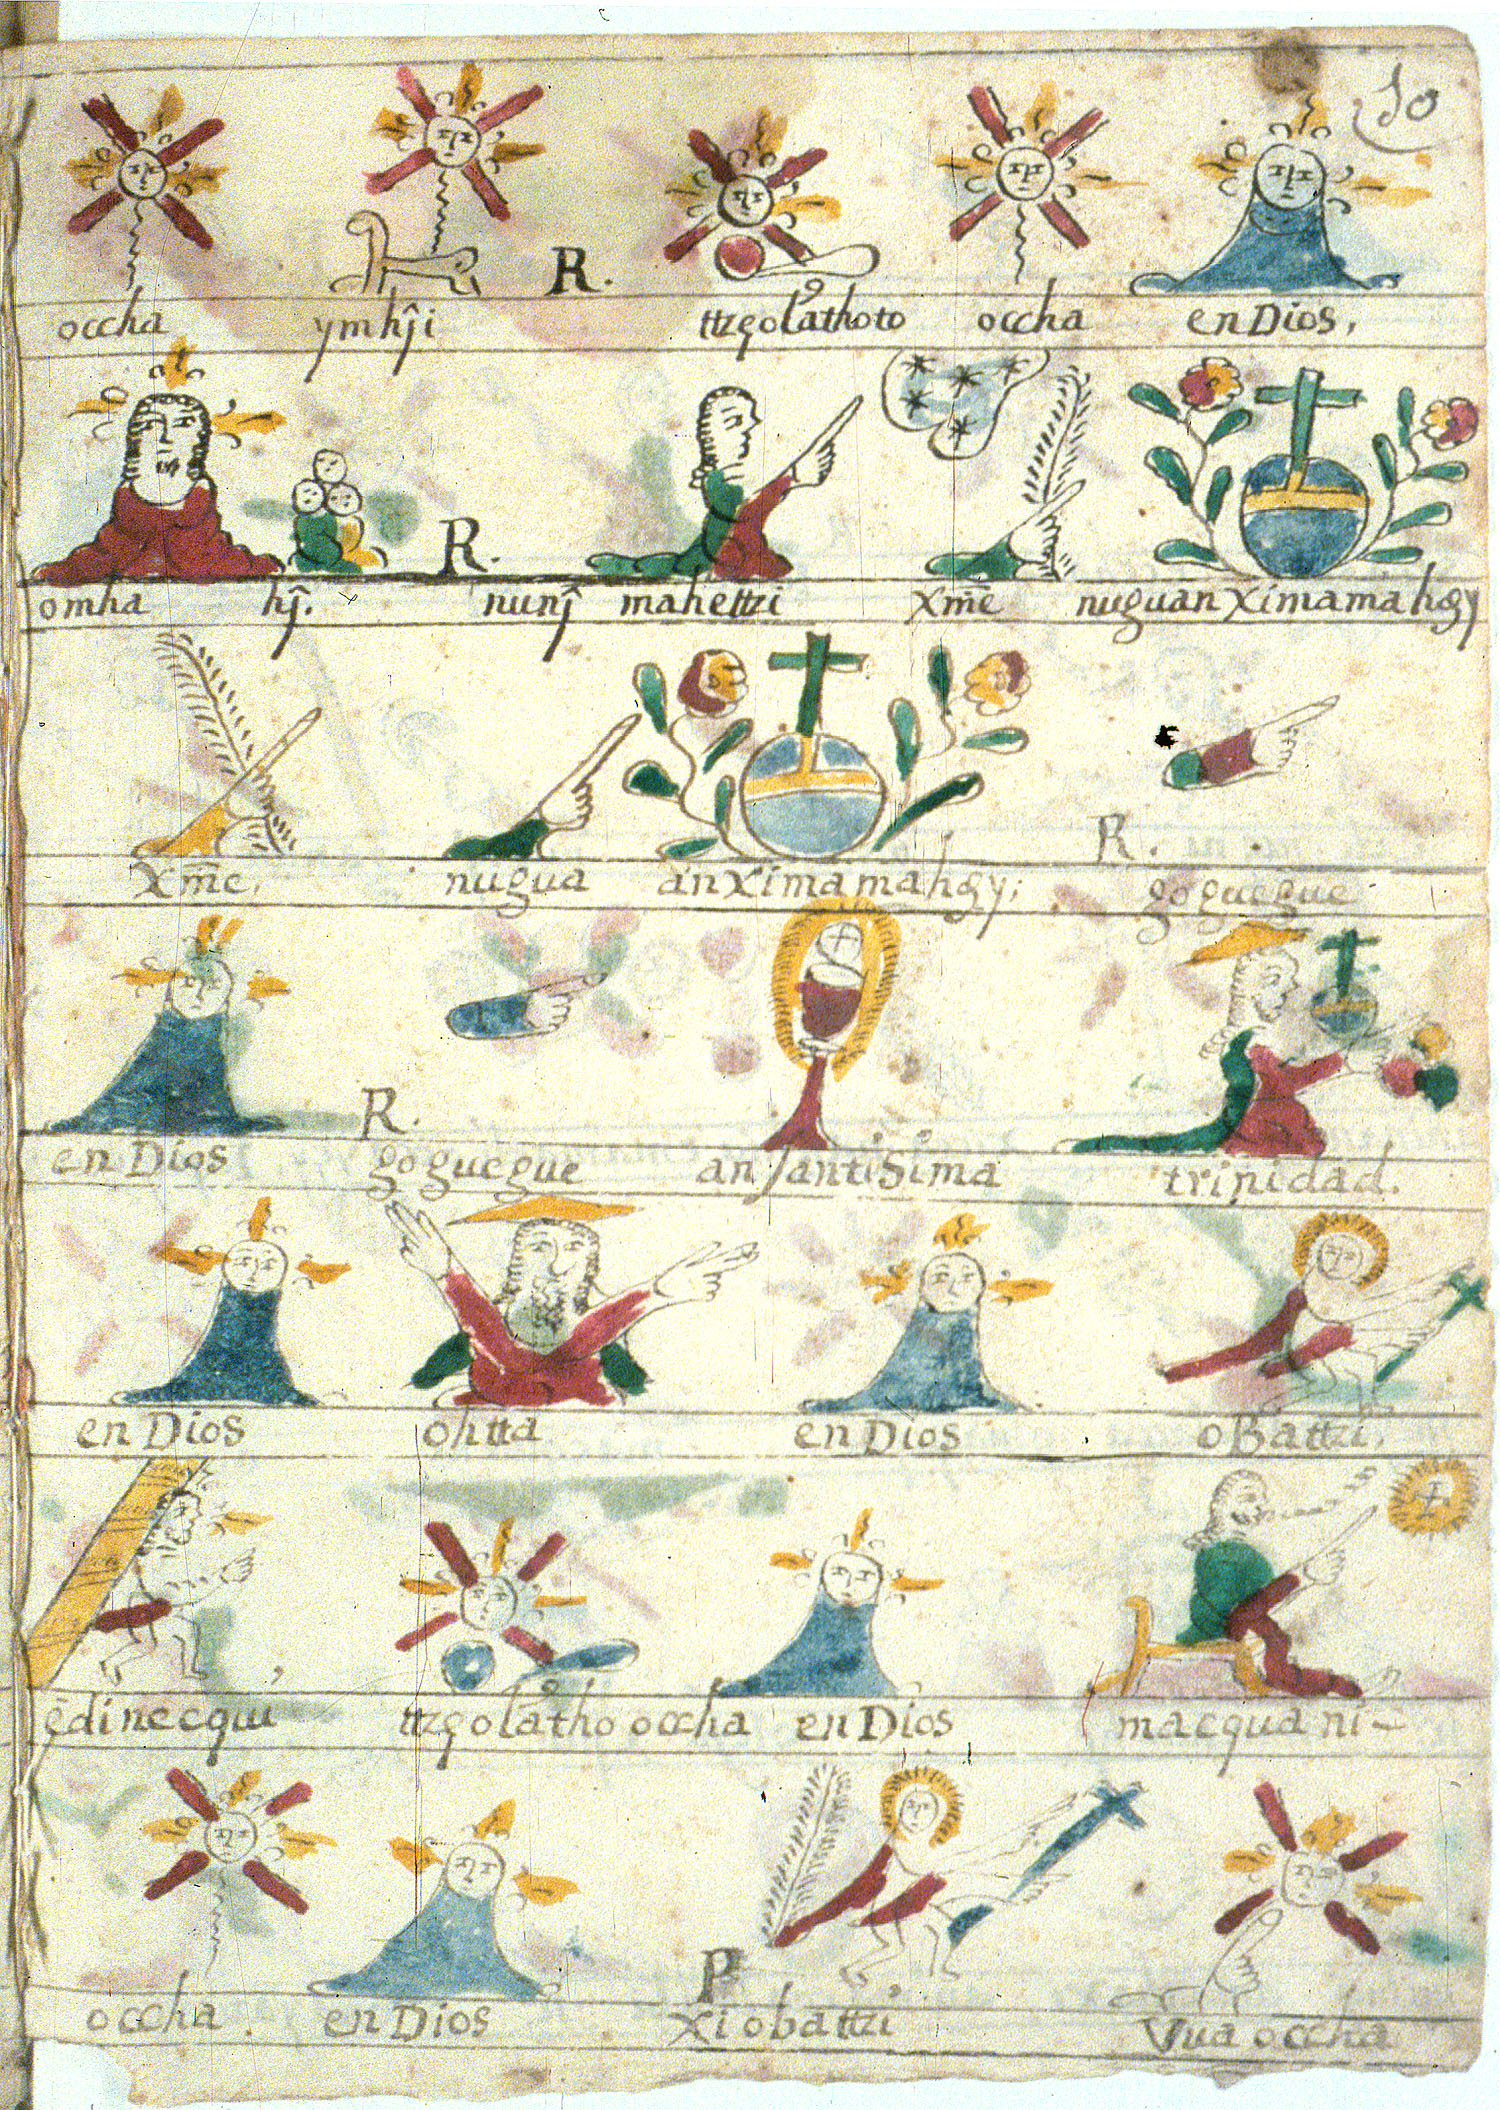 10
R.
occha ymhĵi ttzeolåthoto occha en Dios,
R.
omha hĵ. nunĵ mahettzi Xm̃e nuguan Ximamahęy
R.
Xm̃e, nugua an Ximamahęy; goguegue
R.
en Dios goguegue an santisima trinidad.
en Dios ohtta en Dios oBattzi,
edinecqui ttzęolåtho occha en Dios macquani-
P
occha en Dios Xiobattzi Vua occha